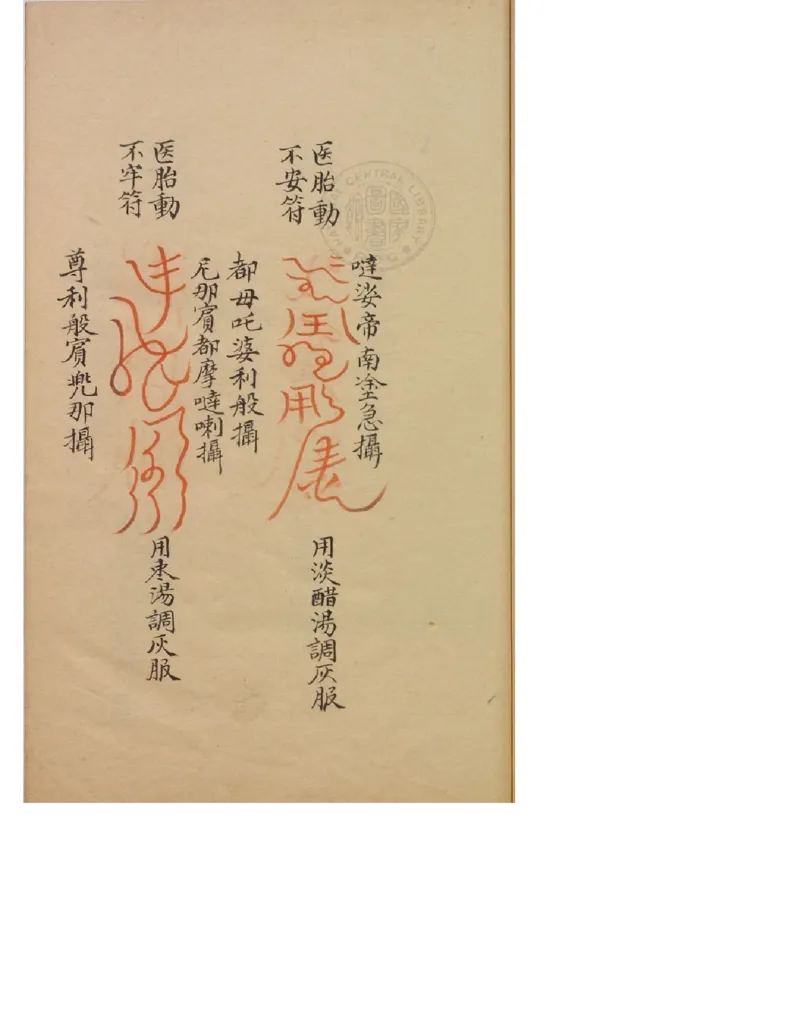 医胎動
不安符
噠娑帝南塗急攝
都毋吒婆利般攝
用淡醋湯調灰服
医胎動
不牢符
尼那賓都摩噠喇攝
尊利般賓兜那攝
用枣湯調灰服
CENTRAL LIBRARY